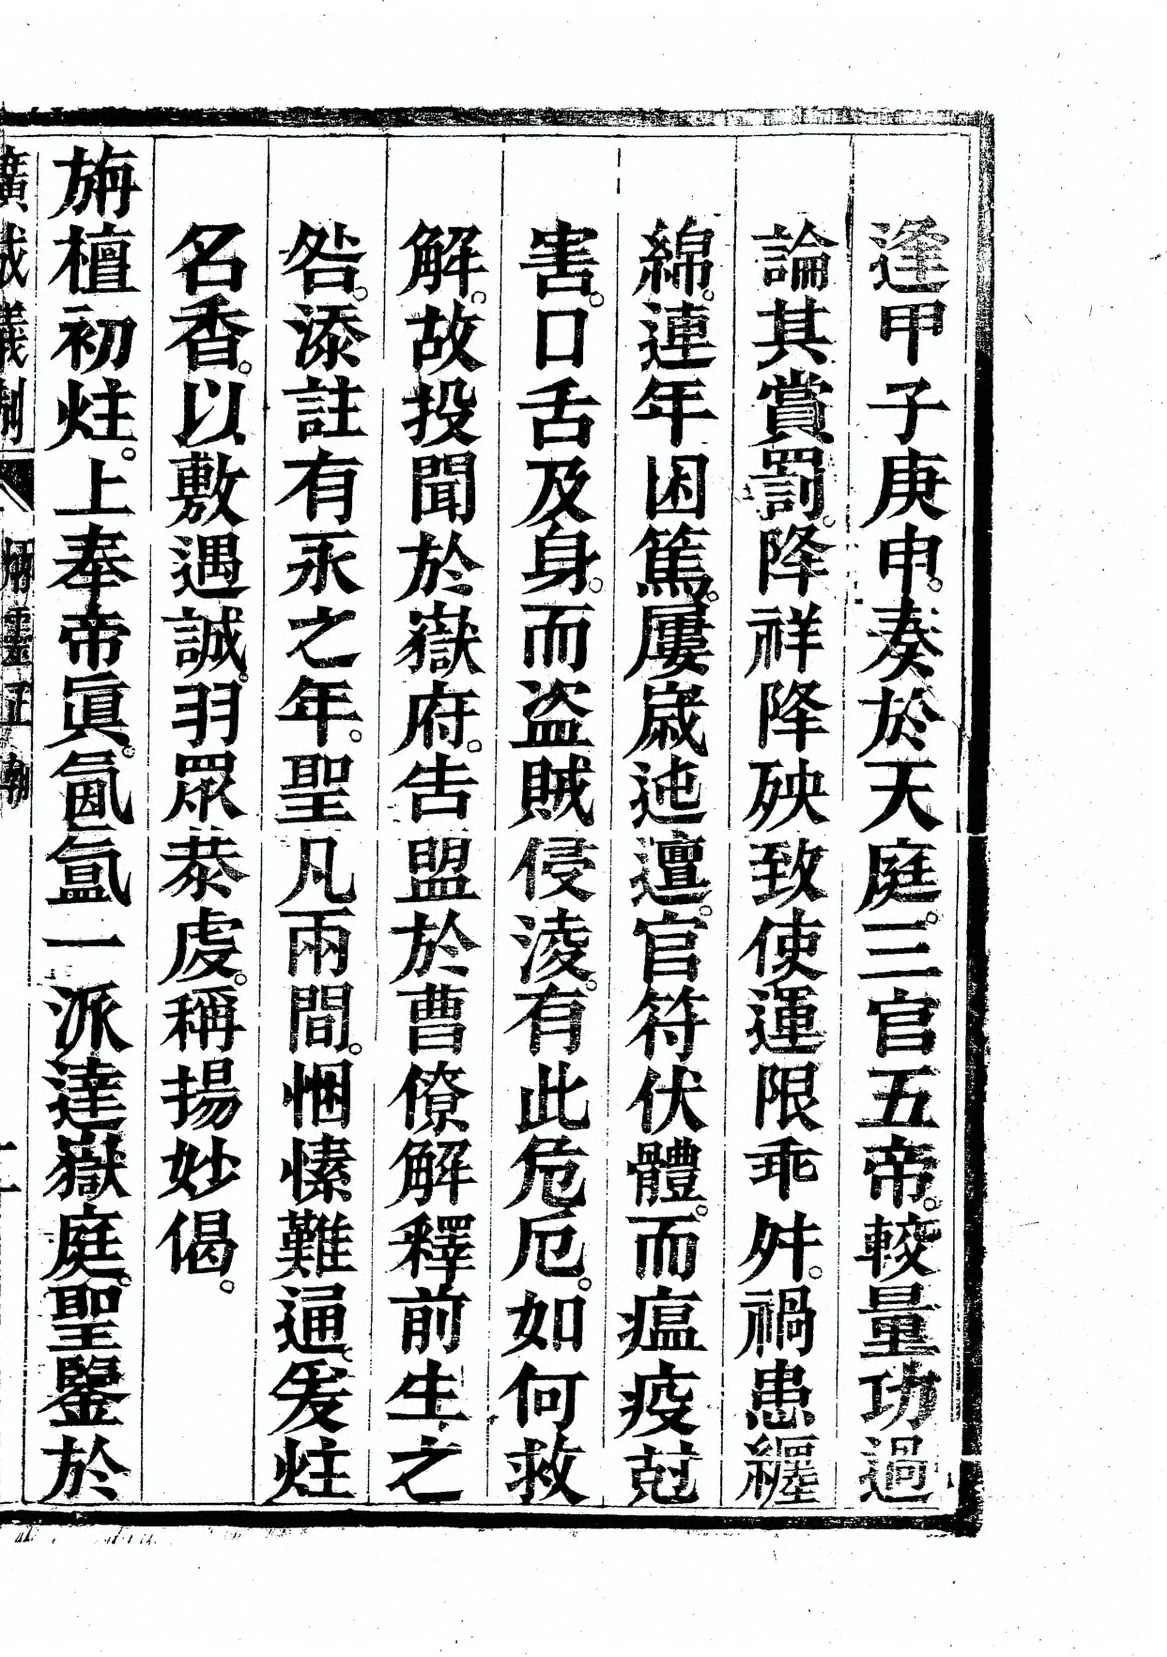 逢甲子庚申。奏於天庭。三官五帝。較量功過
論其賞罰。降祥降殃致使運限乖舛。禍患纏
綿。連年困篤。屢嵗迍邅。官符伏體。而瘟疫尅
害。口舌及身。而盗賊侵淩。有此危厄。如何救
解。故投聞於嶽府。告盟於曹僚解釋前生之
咎。添註有永之年。聖凡兩間。悃愫難通。爰炷
名香。以敷遇誠。羽眾恭虔。稱揚妙偈。
旃檀初炷。上奉帝眞。氤氲一派達嶽庭。聖鑒於
廣成儀制 炳靈正朝